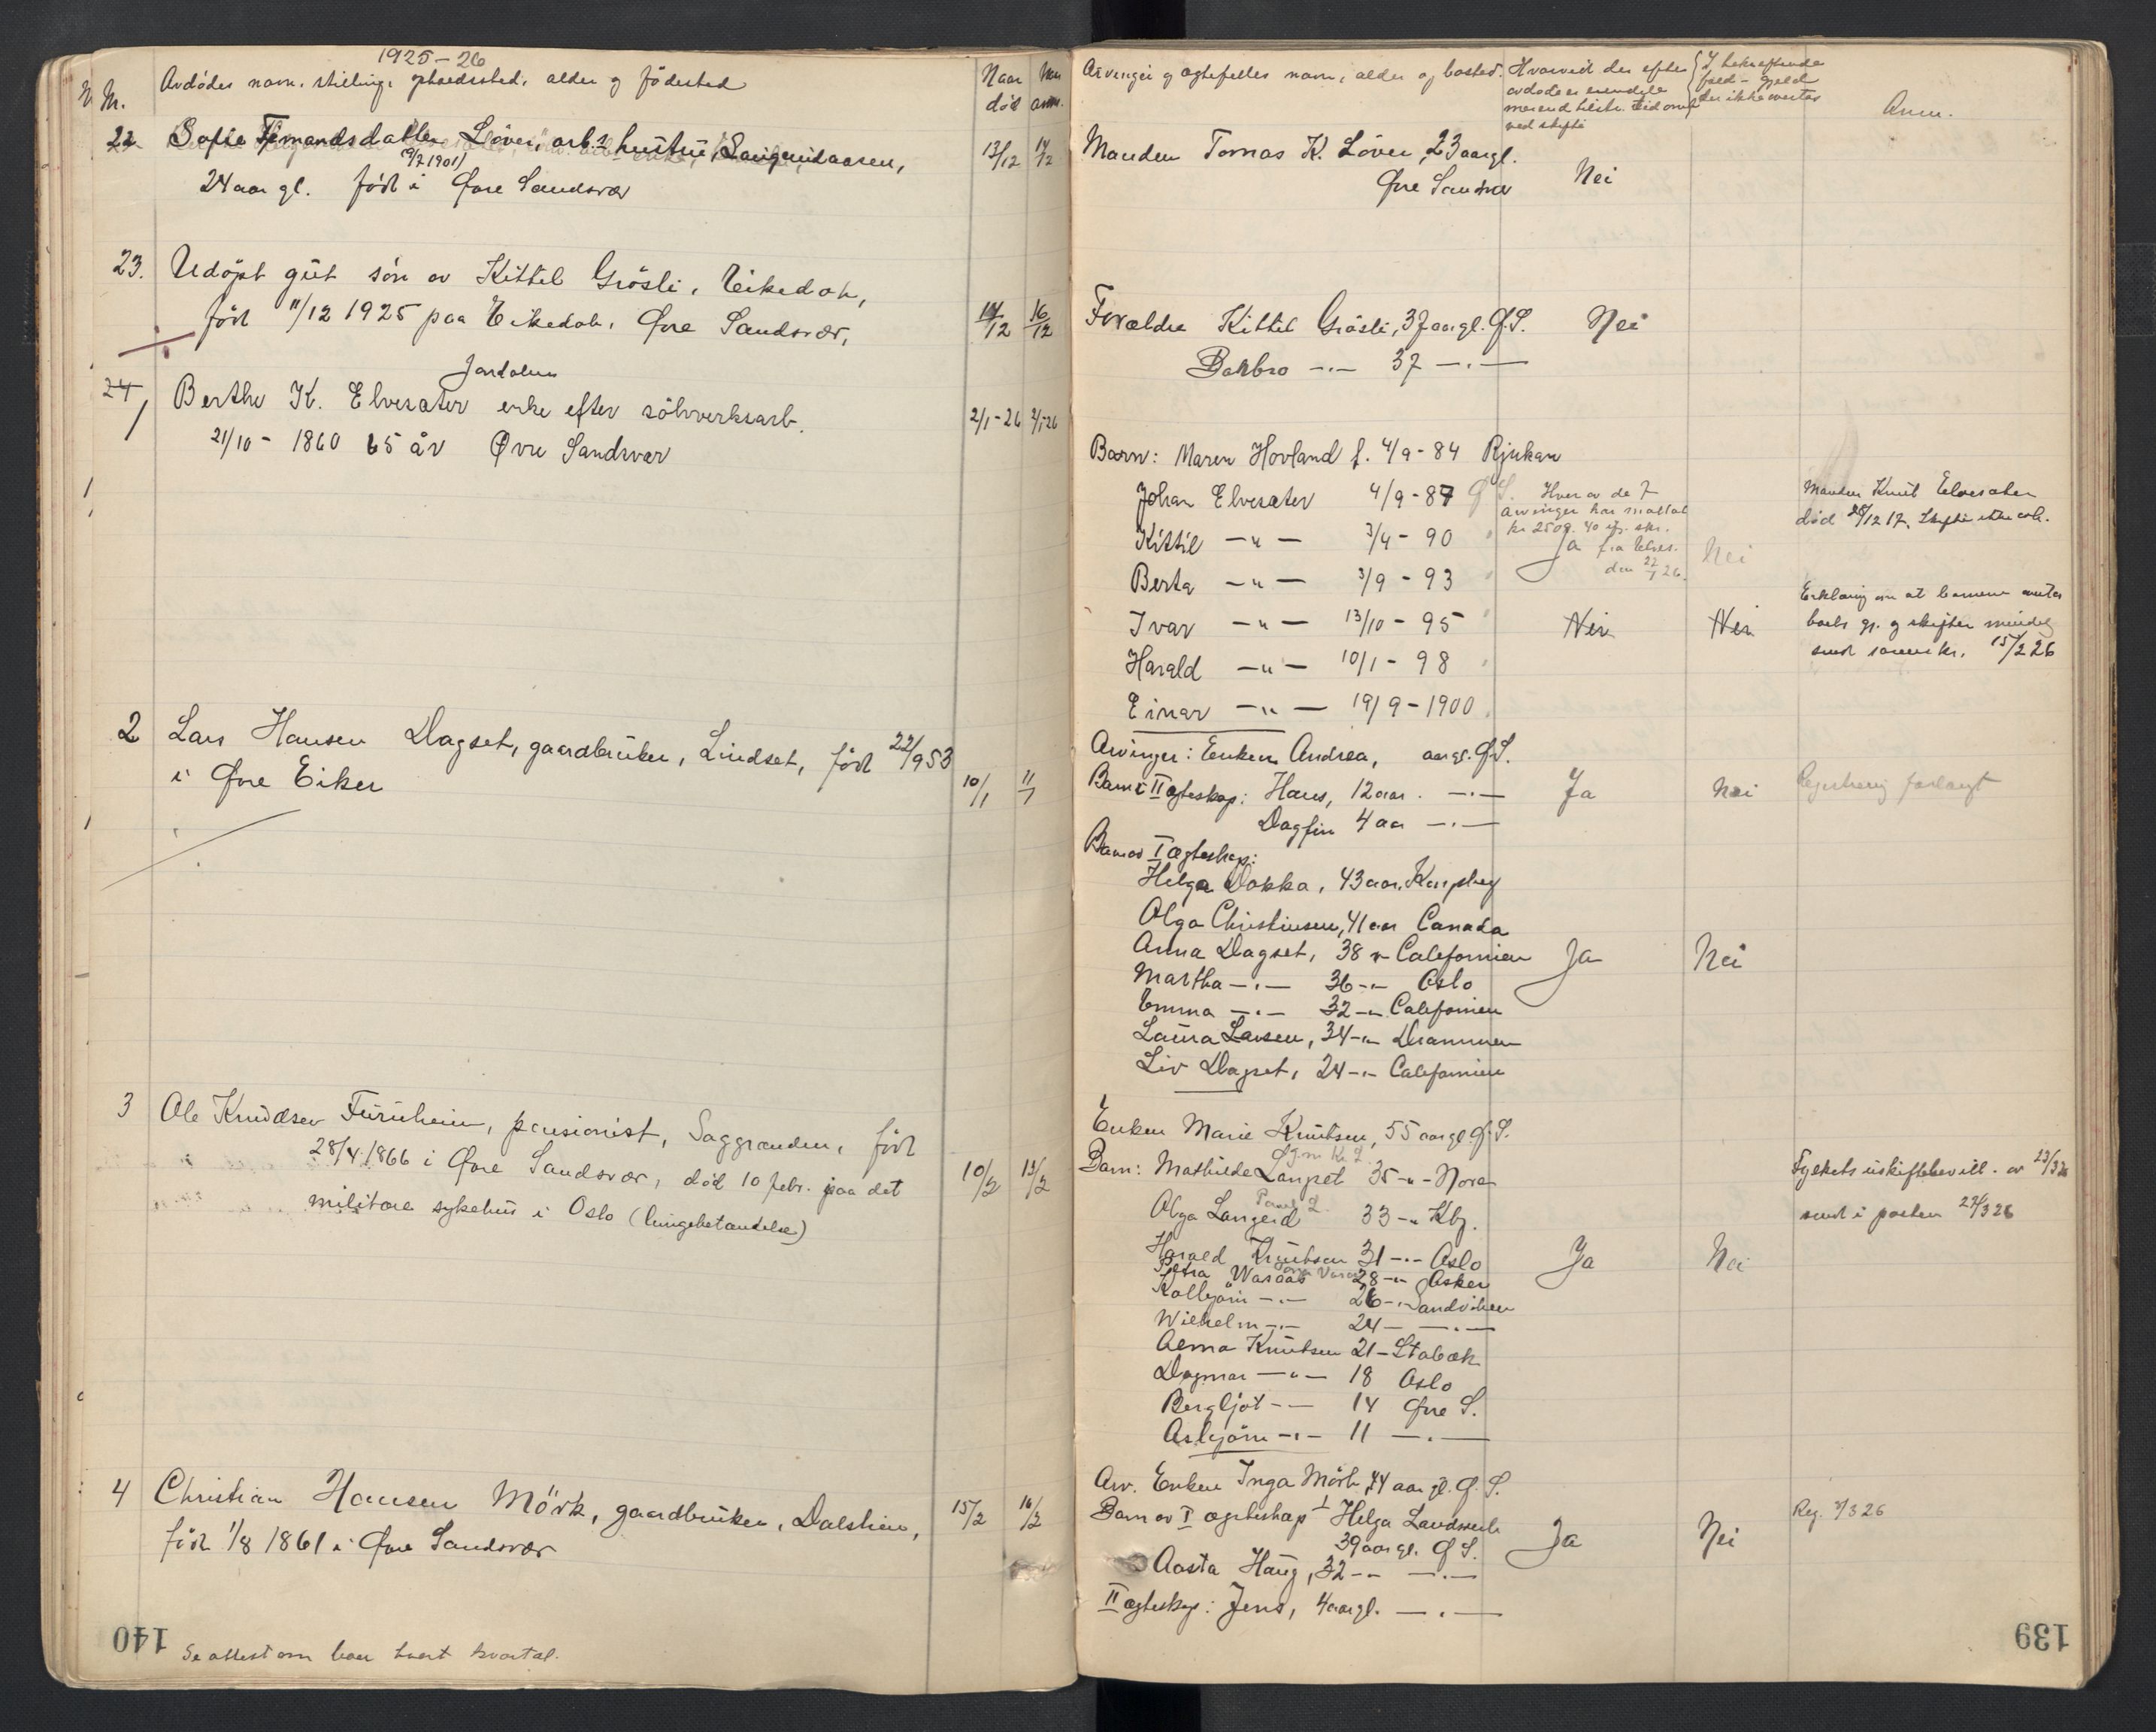 1925-26
Nr.
Avdødes navn, stilling, opholdssted, alder og födested
Naar död
Naar anm.
22
Sofie Løver, arb.s hustru,
(9/2 1901)
24 aar gl. född i Øvre Sandsvær
13/12
14/12
23.
Udöpt gut sön av Kittil Grösli, Eikedok,
född 11/12 1925 paa Eikedok, Øvre Sandsvær,
14/12
16/12
24
Jondalen
Berthe K. Elvesæter enke efter sölvverksarb.
21/10 - 1860 65 år Øvre Sandsvær
2/1-26
2/1-26
2
Lars Hansen Dagset, gaardbruker, Lindset, född 22/9 53
i Øvre Eiker
10/1
11/1
3
Ole Knudsen Furuheim, pensionist, Saggrenden, född
28/4 1866 i Øvre Sandsvær, död 10 febr. paa det
militære sykehus i Oslo (lungebetændelse)
10/2
13/2
4
Christian Hansen Mörk, gaardbruker, Dalstien,
född 1/8 1861 i Øvre Sandsvær
15/2
16/2
140
Se attest om hver kvartal.
Arvinger og ægtefelles navn, alder og bosted.
Hvorvidt der efter
avdöde er
ved skifte
I bekræftende
fald - gjeld
der ikke overtas
Anm.
Manden Tomas K. Löver, 23 aar gl.
Øvre Sandsvær
Nei
Forældre Kittil Grösli, 37 aar gl. Ø.S.
Nei
Barbro -"- 37 -"-
Barn: Maren Hovland f. 4/9 - 84 Rjukan
Johan Elvesæter 4/9 - 87 Ø.S.
Kittil -"- 3/4 - 90
Berta -"- 3/9 - 93
Ivar -"- 13/10 - 95
Harald -"- 10/1 - 98
Einar -"- 19/9 - 1900
Hver av de 7
arvinger har mottat
kr 2508.40
Ja
den 22/1 26.
Nei
Manden Knut Elvesæter
död 28/12 17. Skifte ikke
Nei
Nei
Erklæring om at barnene overtar
boets gj. og skifter mindelig
sendt 15/2 26
Arvinger: Enken Andrea, aar gl. Ø.S.
Barn i II ægteskap: Hans, 12 aar. -"-
Dagfin 4 aar -"-
Ja
Nei
Registrering forlangt
Barn av I ægteskap:
Helga Dokka, 43 aar, Kongsberg
Olga Christiansen, 41 aar Canada
Anna Dagset, 38 " Californien
Martha -"- 36 -"- Oslo
Emma -"- 32 -"- Californien
Laura Larsen, 34 -"- Drammen
Liv Dagset, 24 -"- Californien
Ja
Nei
Enken Marie Knutsen, 55 aar gl. Ø.S.
Barn: Mathilde 35 -"- Nore
Olga Langerud 33 -"- Kbg.
Harald Knutsen 31 -"- Oslo
Petra Waraas 28 -"- Asker
Kolbjörn -"- 26 -"- Sandviken
Wilhelm -"- 24 - -"-
Alma Knutsen 21 - Stabæk
Dagmar -"- 18 Oslo
Bergljot -"- 14 Øvre S.
Asbjörn -"- 11 -"-
Ja
Nei
Fylkets uskiftebevill. av 23/3 26
sendt i posten 27/3 26
Arv. Enken Inga Mörk, 44 aar gl. Ø.S.
Barn av I ægteskap Helga Landsverk
39 aar gl. Ø.S.
Aasta Haug, 32 -"- -"-
II ægteskap: Jens, 4 aar gl. -"-
Ja
Nei
Reg. 3/3 26
139